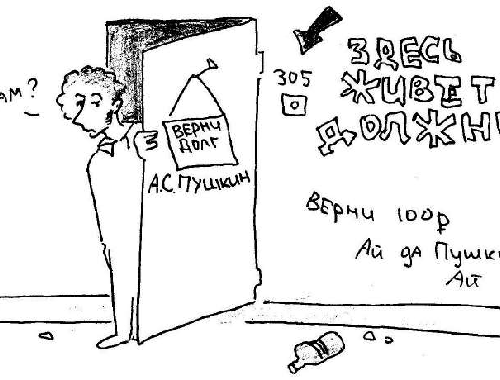 ам?
ВЕРНИ
ДОЛГ
А.С. ПУШКИН
305
ЗДЕСЬ
ЖИВЕТ
ДОЛЖН
ВЕРНИ 100₽
АЙ ДА ПУШК
АЙ